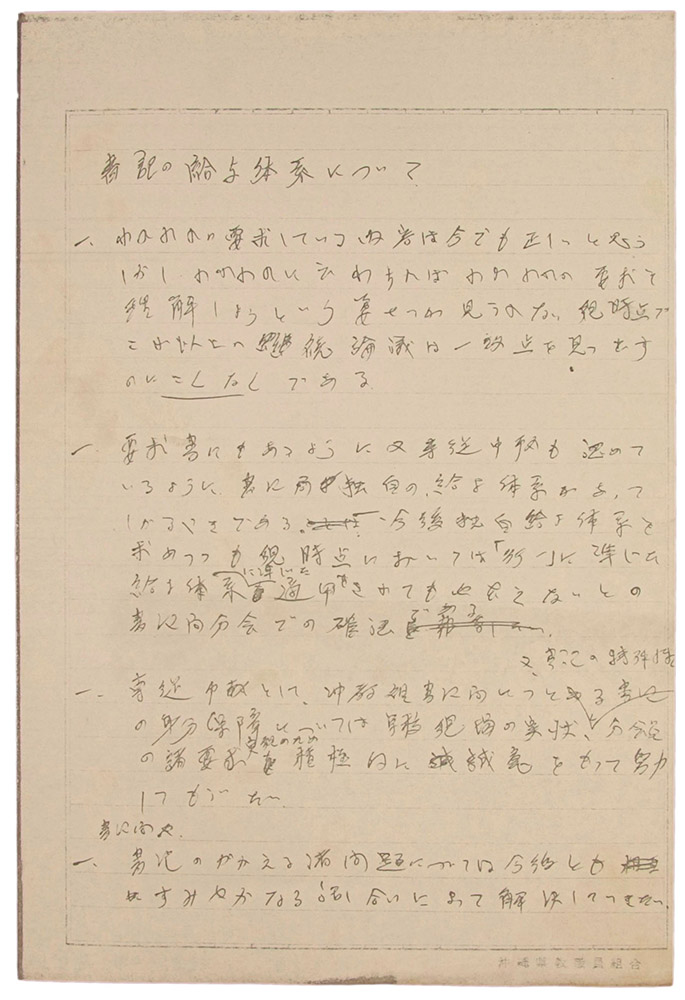 書記の給与体系について
一、われわれの要求している内容は今でも正しいと思う
しかし、われわれに云わすればわれわれの要求を
理解しようという姿せつが見うけない、現時点で
これ以上の継続論議は一致点を見つ出す
のにこんなんである
一、要求書にもあるように又専従中執も認めて
いるように、書記局独自の給与体系があって
しかるべきである。今後独自給与体系を
求めつつも現時点においては「行一」に準じた
給与体系に準じた適用をされてもやむをえないとの
書記局分会での確認である
又、書記の特殊性
一、専従中執として、沖教組書記局につとめる書記
の身分保障については早稲現場の実状、分会
の諸要求実現のため積極的に誠意をもって努力
してもらいたい。
書記局や
一、書記のかかえる諸問題については今後とも
すみやかなる話し合いによって解決していきたい。
沖縄県教職員組合